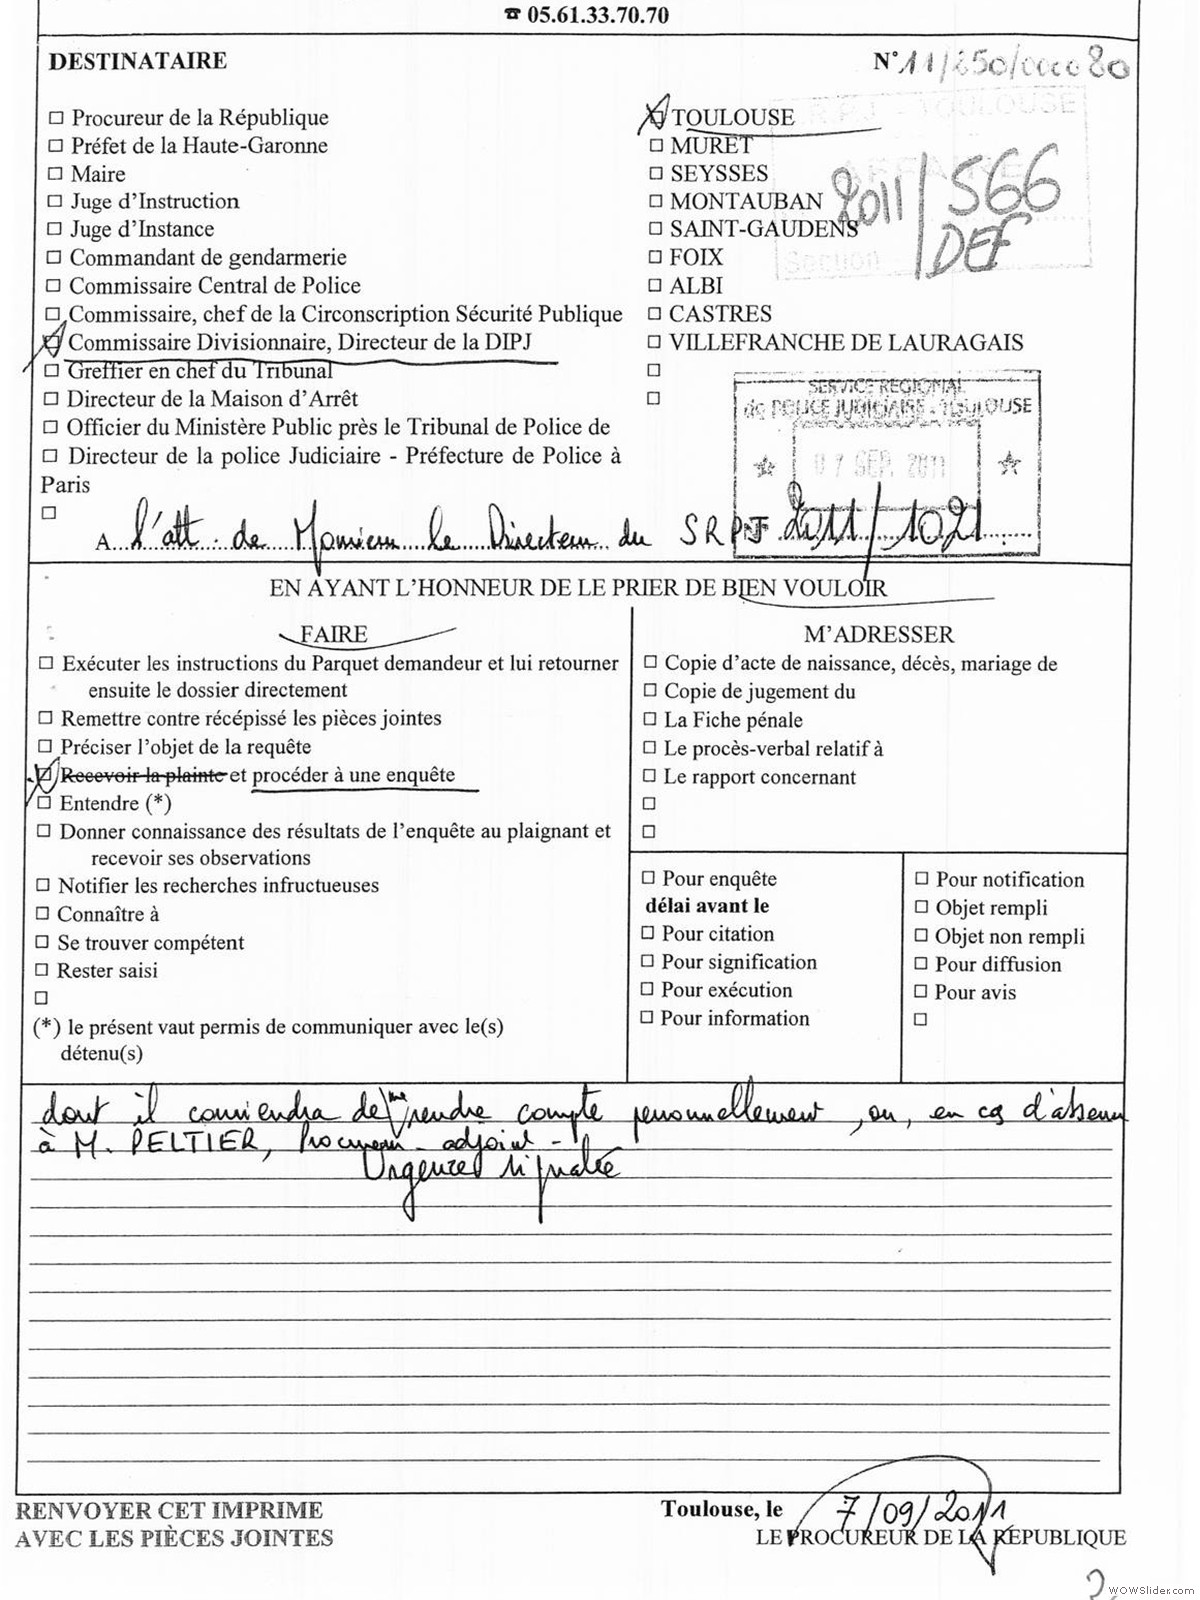 ☎ 05.61.33.70.70
DESTINATAIRE
N° 11/250/000080
☐ Procureur de la République
☐ Préfet de la Haute-Garonne
☐ Maire
☐ Juge d'Instruction
☐ Juge d'Instance
☐ Commandant de gendarmerie
☐ Commissaire Central de Police
☐ Commissaire, chef de la Circonscription Sécurité Publique
☒ Commissaire Divisionnaire, Directeur de la DIPJ
☐ Greffier en chef du Tribunal
☐ Directeur de la Maison d'Arrêt
☐ Officier du Ministère Public près le Tribunal de Police de
☐ Directeur de la police Judiciaire - Préfecture de Police à
Paris
☐
☒ TOULOUSE
☐ MURET
☐ SEYSSES
☐ MONTAUBAN
☐ SAINT-GAUDENS
☐ FOIX
☐ ALBI
☐ CASTRES
☐ VILLEFRANCHE DE LAURAGAIS
☐
☐
S.R.P.J. - TOULOUSE
AFFAIRE
2011/566
DEF
Section
SERVICE REGIONAL
de POLICE JUDICIAIRE - TOULOUSE
07 SEP. 2011
N° 2011/1021
A l'att. de Monsieur le Directeur du SRPJ
EN AYANT L'HONNEUR DE LE PRIER DE BIEN VOULOIR
FAIRE
☐ Exécuter les instructions du Parquet demandeur et lui retourner
ensuite le dossier directement
☐ Remettre contre récépissé les pièces jointes
☐ Préciser l'objet de la requête
☒ Recevoir la plainte et procéder à une enquête
☐ Entendre (*)
☐ Donner connaissance des résultats de l'enquête au plaignant et
recevoir ses observations
☐ Notifier les recherches infructueuses
☐ Connaître à
☐ Se trouver compétent
☐ Rester saisi
☐
(*) le présent vaut permis de communiquer avec le(s)
détenu(s)
M'ADRESSER
☐ Copie d'acte de naissance, décès, mariage de
☐ Copie de jugement du
☐ La Fiche pénale
☐ Le procès-verbal relatif à
☐ Le rapport concernant
☐
☐
☐ Pour enquête
délai avant le
☐ Pour citation
☐ Pour signification
☐ Pour exécution
☐ Pour information
☐ Pour notification
☐ Objet rempli
☐ Objet non rempli
☐ Pour diffusion
☐ Pour avis
☐
dont il conviendra de me rendre compte personnellement, ou, en cas d'absence
à M. PELTIER, Procureur-adjoint -
Urgence signalée
RENVOYER CET IMPRIME
AVEC LES PIÈCES JOINTES
Toulouse, le 7/09/2011
LE PROCUREUR DE LA REPUBLIQUE
2
WOWSlider.com